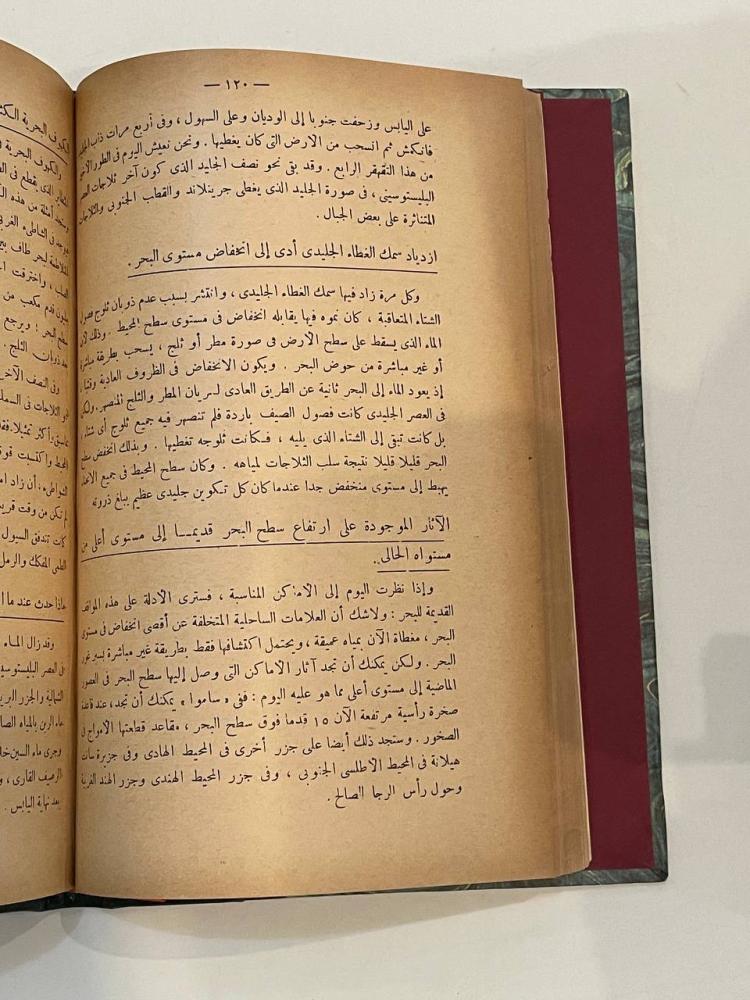 — ١٢٠ —
على اليابس وزحفت جنوبا إلى الوديان وعلى السهول ، وفى أربع مرات ذاب الجليد
فانكمش ثم انسحب من الأرض التى كان يغطيها . ونحن نعيش اليوم فى الطور الأخير
من هذا التقهقر الرابع . وقد بقى نحو نصف الجليد الذى كون آخر ثلاجات العصر
البليستوسينى ، فى صورة الجليد الذى يغطى جرينلاند والقطب الجنوبى والثلاجات
المتناثرة على بعض الجبال .
ازدياد سمك الغطاء الجليدى أدى إلى انخفاض مستوى البحر .
وكل مرة زاد فيها سمك الغطاء الجليدى ، وانتشر بسبب عدم ذوبان ثلوج فصول
الشتاء المتعاقبة ، كان نموه فيها يقابله انخفاض فى مستوى سطح المحيط . وذلك لأن
الماء الذى يسقط على سطح الأرض فى صورة مطر أو ثلج ، يسحب بطريقة مباشرة
أو غير مباشرة من حوض البحر . ويكون الانخفاض فى الظروف العادية وقتيا ،
إذ يعود الماء إلى البحر ثانية عن الطريق العادى لسريان المطر والثلج المنصهر . ولكن
فى العصر الجليدى كانت فصول الصيف باردة فلم تنصهر فيه جميع ثلوج أى شتاء ،
بل كانت تبقى إلى الشتاء الذى يليه ، فكانت ثلوجه تغطيها . وبذلك انخفض سطح
البحر قليلا قليلا نتيجة سلب الثلاجات لمياهه . وكان سطح المحيط فى جميع
يهبط إلى مستوى منخفض جدا عندما كان كل تكوين جليدى عظيم يبلغ ذروته
الآثار الموجودة على ارتفاع سطح البحر قديمـا إلى مستوى أعلى من
مستواه الحالى .
وإذا نظرت اليوم إلى الأماكن المناسبة ، فسترى الأدلة على هذه المواقف
القديمة للبحر : ولاشك أن العلامات الساحلية المتخلفة عن أقصى انخفاض فى مستوى
البحر ، مغطاة الآن بمياه عميقة ، ويحتمل اكتشافها فقط بطريقة غير مباشرة بسبر غور
البحر . ولكن يمكنك أن تجد آثار الأماكن التى وصل إليها سطح البحر فى العصور
الماضية إلى مستوى أعلى مما هو عليه اليوم : ففى «ساموا» يمكنك أن تجد ، عند قاعدة
صخرة رأسية مرتفعة الآن ١٥ قدما فوق سطح البحر ، مقاعد قطعتها الأمواج فى
الصخور . وستجد ذلك أيضا على جزر أخرى فى المحيط الهادى وفى جزيرة سانت
هيلانة فى المحيط الأطلسى الجنوبى ، وفى جزر المحيط الهندى وجزر الهند الغربية
وحول رأس الرجا الصالح .